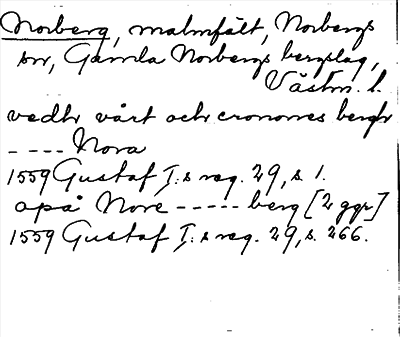 Norberg, malmfält, Norbergs
sn, Gamla Norbergs bergslag,
Västm. l.
vedh vårt och cronones bergh
---- Nora
1559 Gustaf I:s reg. 29, s. 1.
opå Nore ----- berg [2 ggr]
1559 Gustaf I:s reg. 29, s. 266.